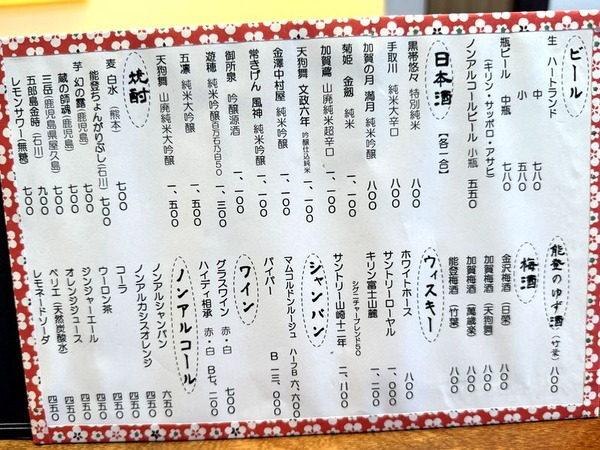 ビール
生 ハートランド 中 七八〇
小 五八〇
瓶ビール 中瓶 七八〇
(キリン・サッポロ・アサヒ)
ノンアルコールビール 小瓶 五五〇
日本酒 【各一合】
黒帯悠々 特別純米 八〇〇
手取川 純米大辛口 八〇〇
加賀の月 満月 純米吟醸 八〇〇
菊姫 金劔 純米 一、一〇〇
加賀鳶 山廃純米超辛口 一、一〇〇
天狗舞 文政六年 吟醸仕込純米 一、一〇〇
金澤中村屋 純米吟醸 一、一〇〇
常きげん 風神 純米吟醸 一、一〇〇
御所泉 吟醸源酒 一、一〇〇
遊穂 純米吟醸 百万石乃白50 一、三〇〇
五凛 純米大吟醸 一、五〇〇
天狗舞 山廃純米大吟醸 一、五〇〇
焼酎
麦 白水(熊本) 七〇〇
能登ちょんがりぶし(石川) 七〇〇
芋 幻の露(鹿児島) 七〇〇
蔵の師魂(鹿児島) 七〇〇
三岳(鹿児島県屋久島) 七〇〇
五郎島金時(石川) 九〇〇
レモンサワー(無糖) 七〇〇
能登のゆず酒(竹葉) 八〇〇
梅酒
金沢梅酒(日榮) 八〇〇
加賀梅酒(天狗舞) 八〇〇
加賀梅酒(萬歳楽) 八〇〇
能登梅酒(竹葉) 八〇〇
ウィスキー
ホワイトホース 八〇〇
サントリーローヤル 一、〇〇〇
キリン富士山麓 一、二〇〇
シグニチャーブレンド50
サントリー山崎十二年 二、八〇〇
シャンパン
マムコルドンルージュ ハーフB 六、六〇〇
パイパー B 一三、〇〇〇
ワイン
グラスワイン 赤・白 七〇〇
ハイディ相承 赤・白 B七、二〇〇
ノンアルコール
ノンアルシャンパン 六五〇
ノンアルカシスオレンジ 四五〇
コーラ 四五〇
ウーロン茶 四五〇
ジンジャーエール 四五〇
オレンジジュース 四五〇
ペリエ(天然炭酸水) 四五〇
レモネードソーダ 四五〇